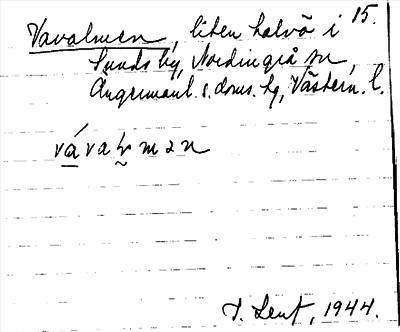 15.
Vavalmen, liten halvö i
Sunds by, Nordingrå sn,
Ångermanl. s. doms. hg, Västern. l.
vávaḷmən
D. Lent, 1944.